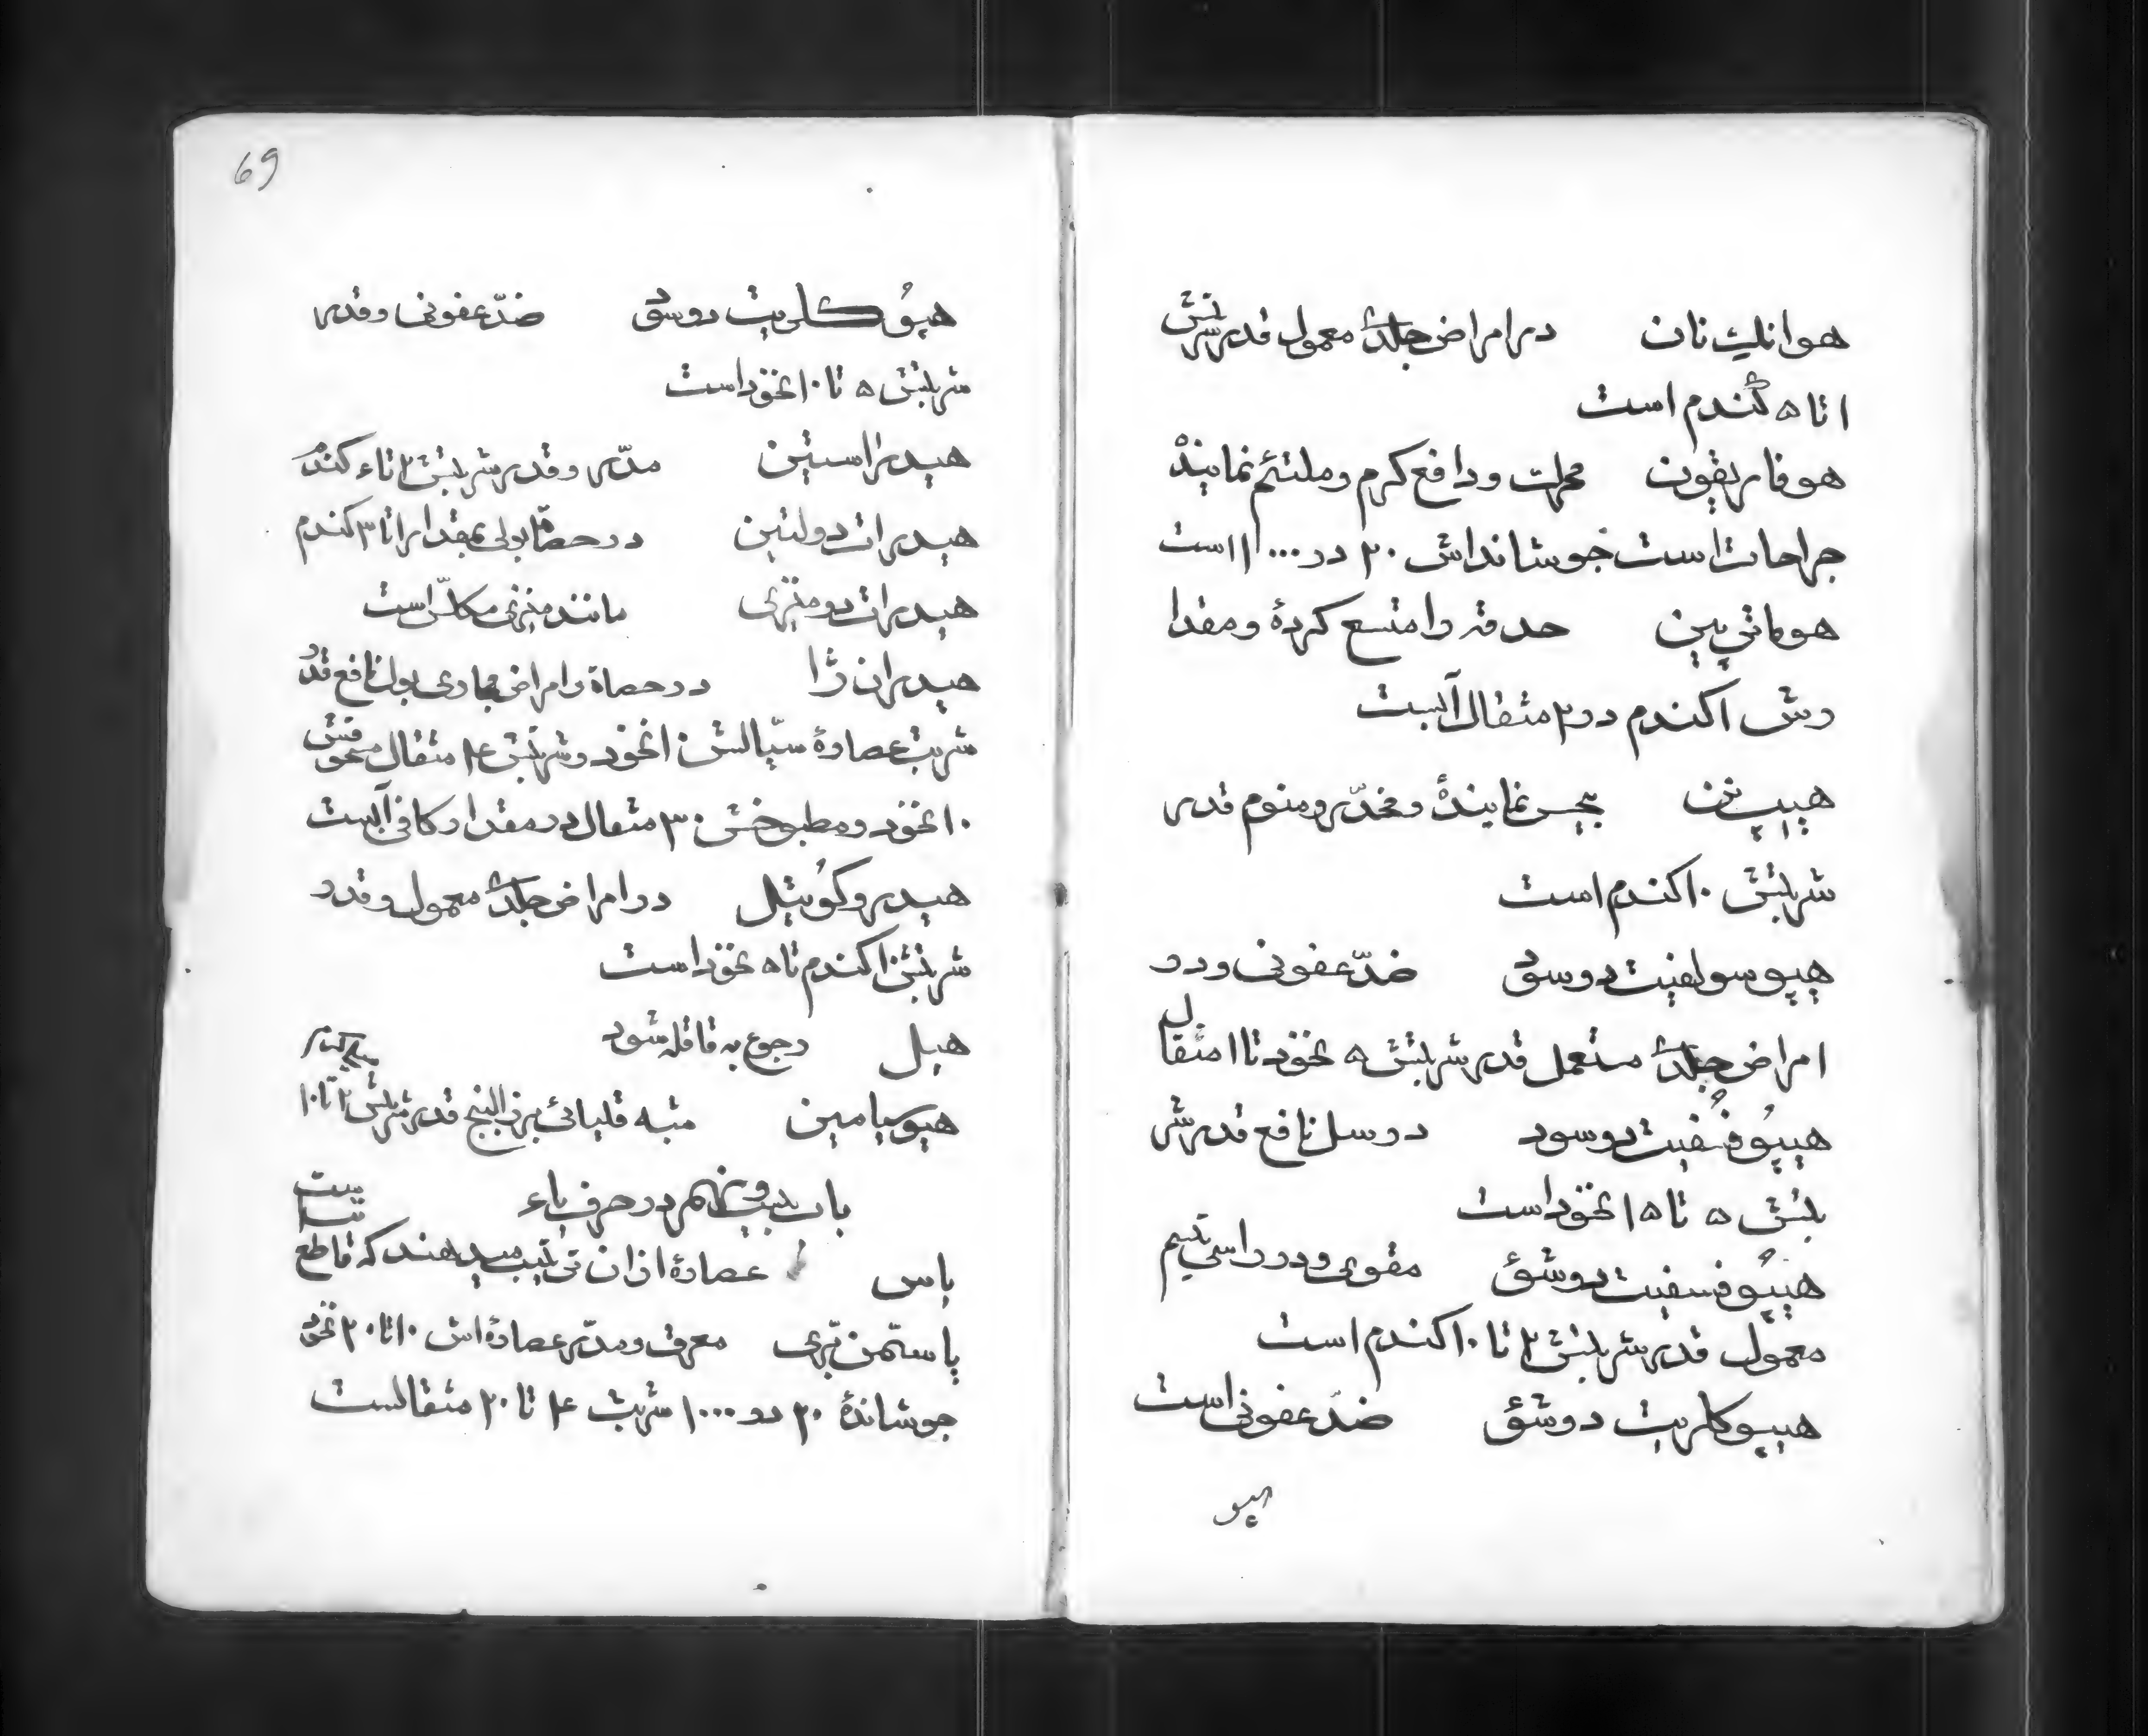 هوانلیت نان درامراض جلدیّه معمول قدرشربتش
۱ تا ۵ گندم است
هوفاریقون محرک و دافع کرم و ملتئم نمایندهٔ
جراحات است جوشانداش ۲۰ در ۱۰۰۰ است
هوماتی پین حدقه را متسع کردهٔ ومقدا
رش ۱ کندم در ۲ مثقال آبست
هیپ نن بیحس نمایندهٔ و مخدّر و منوم قدر
شربتش ۱۰ کندم است
هیپوسولفیت دوسوی ضدّ عفونی و در
امراض جلدیّه مستعمل قدر شربتش ۵ نخود تا ۱ مثقال
هیپوُفُسفیت دوسود در سل نافع قدر شر
بتش ۵ تا ۱۵ نخود است
هیپوُفسفیت دوشوُ مقوی و در راسی تیسم
معمول قدر شربتش ۲ تا ۱۰ کندم است
هیپوکلریت دوشوُ ضدّ عفونی است
هیپو
69
هیپوُکلریت دوسوی ضدّ عفونی و قدر
شربتش ۵ تا ۱۰ نخود است
هیدراستین مدّر و قدر شربتش ۲ تا ۴ کندم
هیدرات دولتین در حصاة بولی بمقدار ۱ تا ۳ کندم
هیدرات دومنیزی مانند منیزی مکلّس است
هیدران ژا در حصاة و امراض مجاری بول نافع قدر
شربت عصارهٔ سیّالش ۱۰ نخود و شربتش ۴ مثقال سحوقش
۱۰ نخود و مطبوخش ۳۰ مثقال در مقدار کافی آبست
هیدروکوُتیل در امراض جلدیّه معمول و قدر
شربتش ۱ کندم تا ۵ نخود است
هیل رجوع به قاقله شود
هیوسیامین مثبه قلیائی بزرالبنج قدر شربتش ۲ تا ۱۰
باب بیست و نهم در حرف یاء
یاس عصارهٔ از ان ترتیب میدهند که قاطع
پاستمن بری معرق و مدّر عصارهٔ اش ۱۰ تا ۲۰ نخود
جوشاندهٔ ۲۰ در ۱۰۰۰ شربت ۴ تا ۲۰ مثقالست